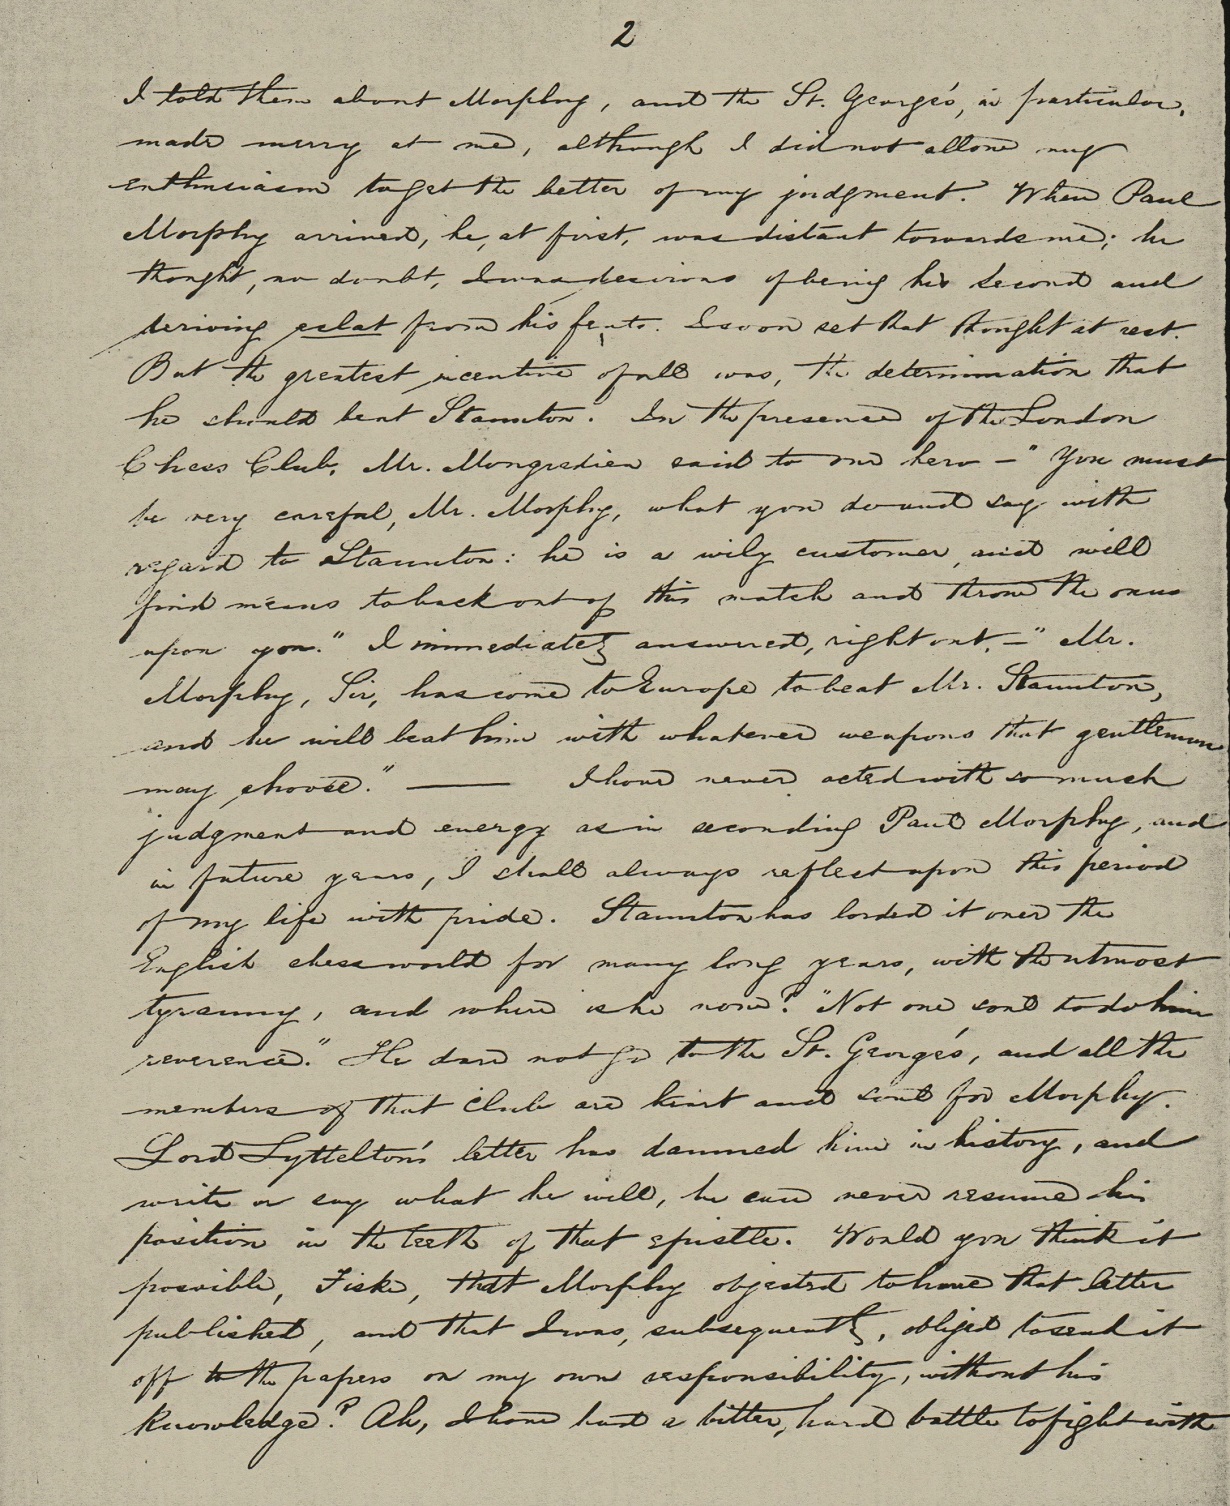 2
I told them about Morphy, and the St. George's, in particular,
made merry at me, although I did not allow my
enthusiasm to get the better of my judgment. When Paul
Morphy arrived, he, at first, was distant towards me; he
thought, no doubt, I was desirous of being his second and
deriving eclat from his feats. I soon set that thought at rest.
But the greatest incentive of all was, the determination that
he should beat Staunton. In the presence of the London
Chess Club, Mr. Mongredien said to our hero — "You must
be very careful, Mr. Morphy, what you do and say with
regard to Staunton: he is a wily customer, and will
find means to back out of this match and throw the onus
upon you." I immediately answered, right out, — "Mr.
Morphy, Sir, has come to Europe to beat Mr. Staunton,
and he will beat him with whatever weapons that gentleman
may choose." —— I have never acted with so much
judgment and energy as in seconding Paul Morphy, and
in future years, I shall always reflect upon this period
of my life with pride. Staunton has lorded it over the
English chess world for many long years, with the utmost
tyranny, and where is he now? "Not one soul to do him
reverence." He dare not go to the St. George's, and all the
members of that Club are heart and soul for Morphy.
Lord Lyttelton's letter has damned him in history, and
write or say what he will, he can never resume his
position in the teeth of that epistle. Would you think it
possible, Fiske, that Morphy objected to have that letter
published, and that I was, subsequently, obliged to send it
off to the papers on my own responsibility, without his
knowledge? Ah, I have had a bitter, hard battle to fight with